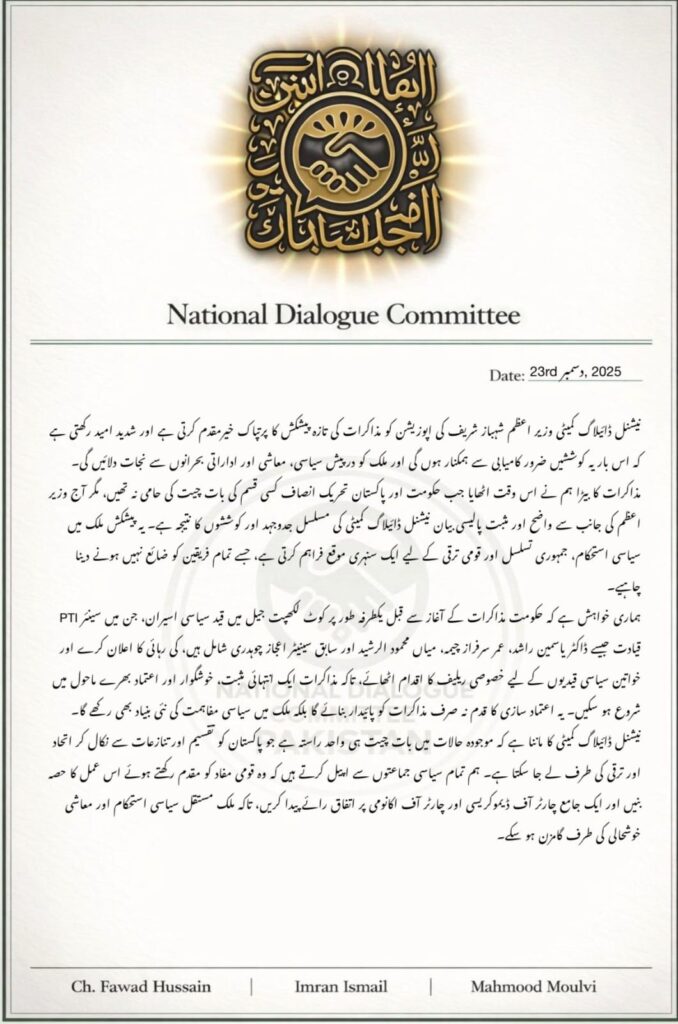 National Dialogue Committee
Date: 23rd دسمبر, 2025
نیشنل ڈائیلاگ کمیٹی وزیر اعظم شہباز شریف کی اپوزیشن کو مذاکرات کی تازہ پیشکش کا پرتپاک خیر مقدم کرتی ہے اور شدید امید رکھتی ہے
کہ اس بار یہ کوششیں ضرور کامیابی سے ہمکنار ہوں گی اور ملک کو درپیش سیاسی، معاشی اور اداراتی بحرانوں سے نجات دلائیں گی۔
مذاکرات کا بیڑا ہم نے اس وقت اٹھایا جب حکومت اور پاکستان تحریک انصاف کسی قسم کی بات چیت کی حامی نہ تھیں، مگر آج وزیر
اعظم کی جانب سے واضح اور مثبت پالیسی بیان نیشنل ڈائیلاگ کمیٹی کی مسلسل جدوجہد اور کوششوں کا نتیجہ ہے۔ یہ پیشکش ملک میں
سیاسی استحکام، جمہوری تسلسل اور قومی ترقی کے لیے ایک سنہری موقع فراہم کرتی ہے، جسے تمام فریقین کو ضائع نہیں ہونے دینا
چاہیے۔
ہماری خواہش ہے کہ حکومت مذاکرات کے آغاز سے قبل یکطرفہ طور پر کوٹ لکھپت جیل میں قید سیاسی اسیران، جن میں سینئر PTI
قیادت جیسے ڈاکٹر یاسمین راشد، عمر سرفراز چیمہ، میاں محمود الرشید اور سابق سینیٹر اعجاز چوہدری شامل ہیں، کی رہائی کا اعلان کرے اور
خواتین سیاسی قیدیوں کے لیے خصوصی ریلیف کا اقدام اٹھائے، تاکہ مذاکرات ایک انتہائی مثبت، خوشگوار اور اعتماد بھرے ماحول میں
شروع ہو سکیں۔ یہ اعتماد سازی کا قدم نہ صرف مذاکرات کو پائیدار بنائے گا بلکہ ملک میں سیاسی مفاہمت کی نئی بنیاد بھی رکھے گا۔
نیشنل ڈائیلاگ کمیٹی کا ماننا ہے کہ موجودہ حالات میں بات چیت ہی واحد راستہ ہے جو پاکستان کو تقسیم اور تنازعات سے نکال کر اتحاد
اور ترقی کی طرف لے جا سکتا ہے۔ ہم تمام سیاسی جماعتوں سے اپیل کرتے ہیں کہ وہ قومی مفاد کو مقدم رکھتے ہوئے اس عمل کا حصہ
بنیں اور ایک جامع چارٹر آف ڈیموکریسی اور چارٹر آف اکانومی پر اتفاق رائے پیدا کریں، تاکہ ملک مستقل سیاسی استحکام اور معاشی
خوشحالی کی طرف گامزن ہو سکے۔
NATIONAL DIALOGUE
COMMITTEE
PAKISTAN
Ch. Fawad Hussain | Imran Ismail | Mahmood Moulvi